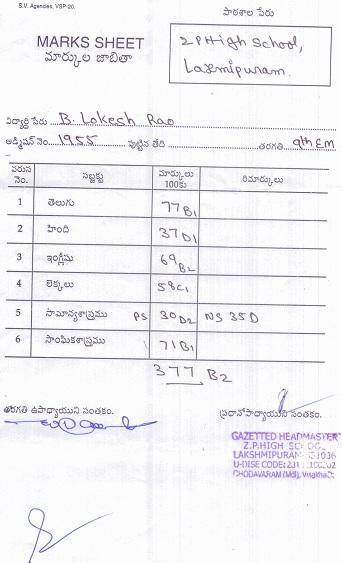 S.V. Agencies, VSP-20.
MARKS SHEET
మార్కుల జాబితా
పాఠశాల పేరు
Z P High School,
Laxmipuram.
విద్యార్థి పేరు B. Lokesh Rao
అడ్మిషన్ నెం. 1955 పుట్టిన తేది తరగతి 9th EM
వరుస నెం. సబ్జక్టు మార్కులు 100కు రిమార్కులు
1 తెలుగు 77 B1
2 హింది 37 D1
3 ఇంగ్లీషు 69 B2
4 లెక్కలు 58 C1
5 సామాన్యశాస్త్రము PS 30 D2 NS 35 D
6 సాంఘికశాస్త్రము 71 B1
377 B2
తరగతి ఉపాధ్యాయుని సంతకం. ప్రధానోపాధ్యాయుని సంతకం.
GAZETTED HEADMASTER
Z.P.HIGH SCHOOL
LAKSHMIPURAM
U-DISE CODE:
CHODAVARAM (Mdl),